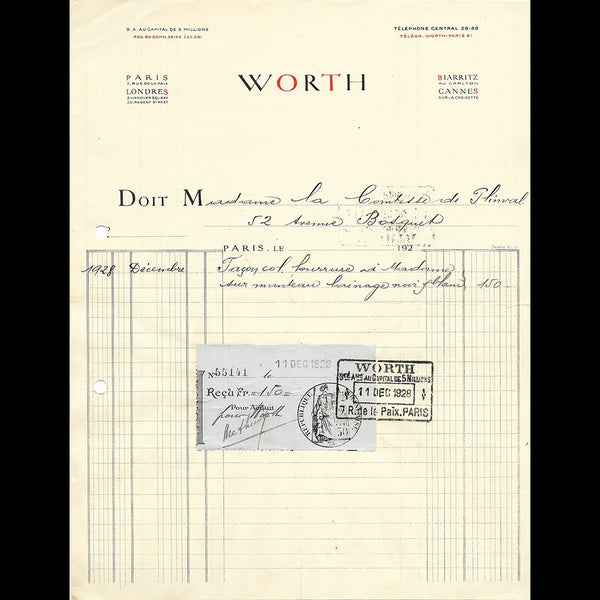 S. A. AU CAPITAL DE 5 MILLIONS
REG. DU COMM. SEINE 233.981
TÉLÉPHONE CENTRAL 28-88
TÉLÉGR. WORTH-PARIS 61
PARIS
7, RUE DE LA PAIX
LONDRES
3, HANOVER SQUARE
221, REGENT STREET
WORTH
BIARRITZ
AU CARLTON
CANNES
SUR LA CROISETTE
DOIT Madame la Comtesse de
52 Avenue Bosquet
PARIS, LE 192
1928 Décembre Façon col fourrure à Madame
sur manteau lainage noir & blanc 150.-
11 DEC 1928
No 55141 le
Reçu Fr. = 150 =
Pour Acquit
pour Worth
RÉPUBLIQUE
50
WORTH
Sté AME AU CAPITAL DE 5 MILLIONS
11 DEC 1928
7, R. de la Paix, PARIS